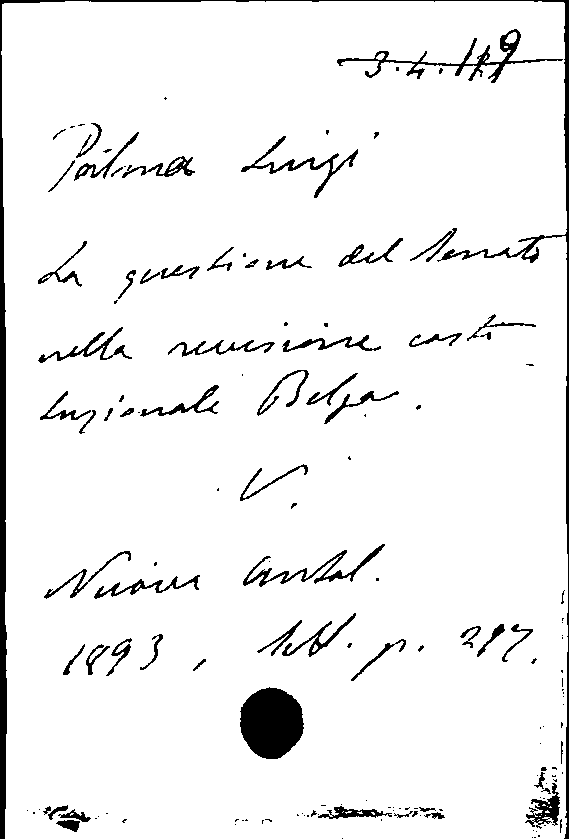 3.4.119
Palma Luigi
La questione del Senato
nella revisione costi
tuzionale Belga.
V.
Nuova Antol.
1893, sett. p. 297.